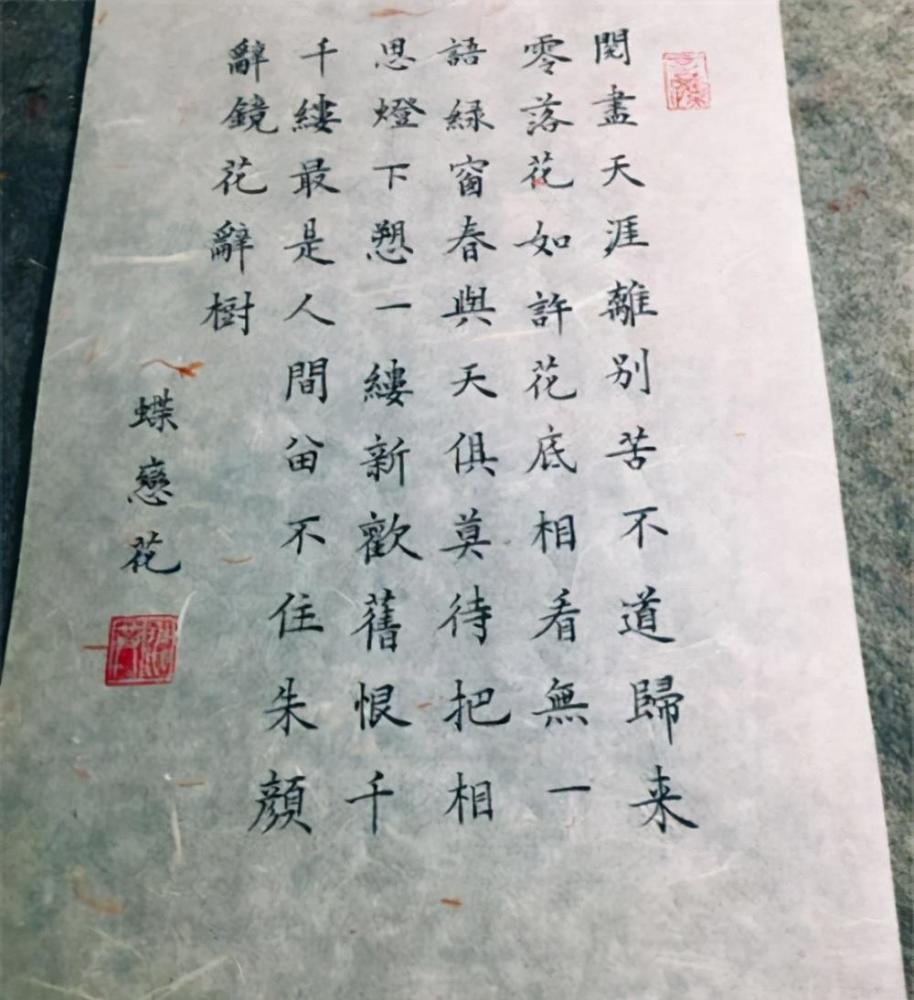 閱盡天涯離別苦不道歸来
零落花如許花底相看無一
語緑窗春與天俱莫待把相
思燈下愬一縷新歡舊恨千
千縷最是人間畱不住朱顔
辭鏡花辭樹
蝶戀花